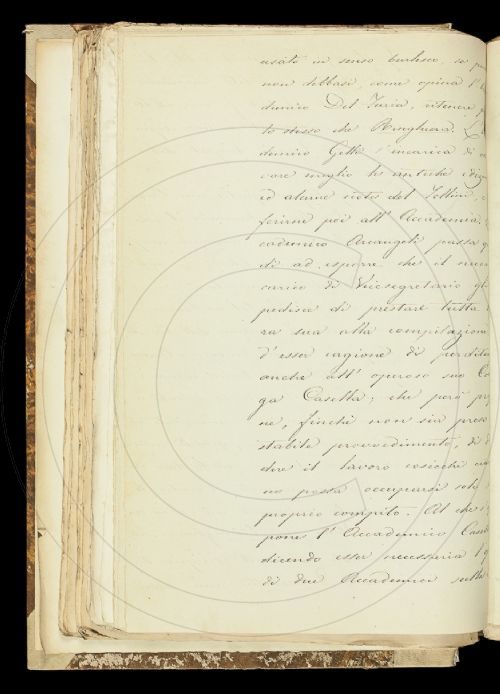 usato in senso burlesco, se
non debbasi, come opina l'
demico Del Furia, ritenere
lo stesso che Ringhiera.
demico Gelli s'incarica di
care meglio le antiche
ed alcune note del
ferirne poi all' Accademia.
cademico Arcangeli passa
di ad esporre che il
carico di Vicesegretario
pedisca di prestare tutta
ra sua alla compilazione
d'esser cagione di perdita
anche all' operoso suo
ga Casella; che però
ne, finchè non sia preso
stabile provvedimento, di
dere il lavoro cosicchè
no possa occuparsi solo
proprio compito. Al che
pone l'Accademico
dicendo esser necessaria
di due Accademici sulla